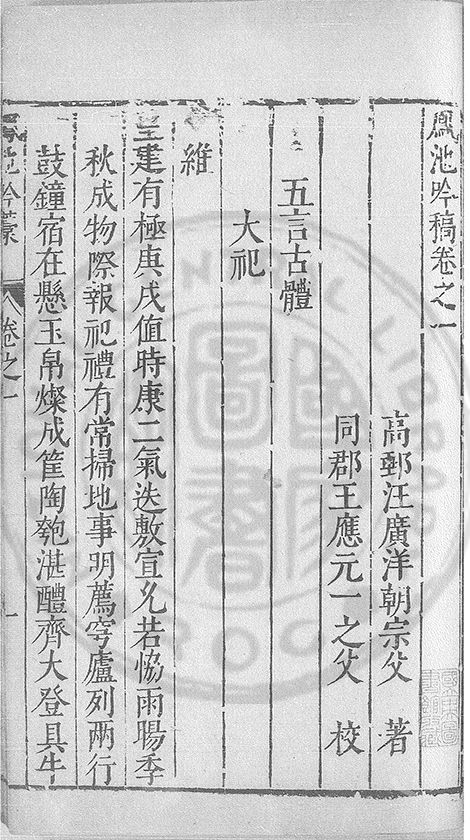 鳳池吟稿卷之一
高郵汪廣洋朝宗父 著
同郡王應元一之父 校
五言古體
大祀
維
皇建有極庚戌值時康二氣迭敷宣允若恊雨暘季
秋成物際報祀禮有常掃地事明薦穹廬列兩行
鼓鐘宿在懸玉帛燦成筐陶匏湛醴齊大登具牛
鳳池吟藁
卷之一
一